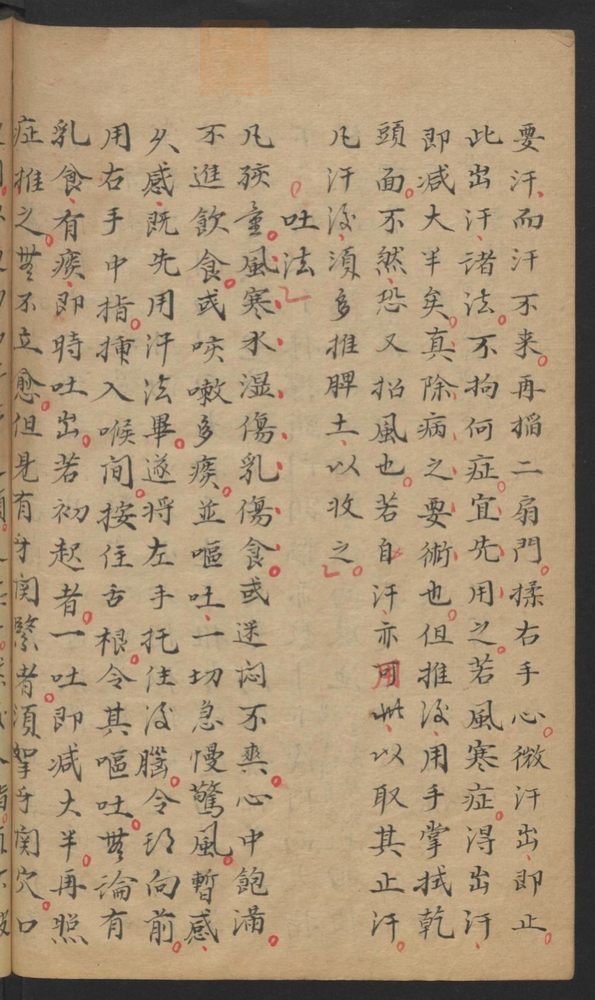 要汗而汗不来再掐二扇門揉右手心微汗出即止
此出汗諸法不拘何症宜先用之若風寒症得出汗
即减大半矣真除病之要術也但推後用手掌拭乾
頭面不然恐又招風也若自汗亦用此以取其止汗
凡汗後須多推脾土以收之
吐法
凡孩童風寒水湿傷乳傷食或迷闷不爽心中飽滿
不進飲食或咳嗽多痰並嘔吐一切急慢驚風暫感
久感既先用汗法畢遂将左手托住後腦令頭向前
用右手中指插入喉间按住舌根令其嘔吐無論有
乳食有痰即時吐出若初起者一吐即减大半再照
症推之無不立愈但見有牙関緊者須掌牙関穴口